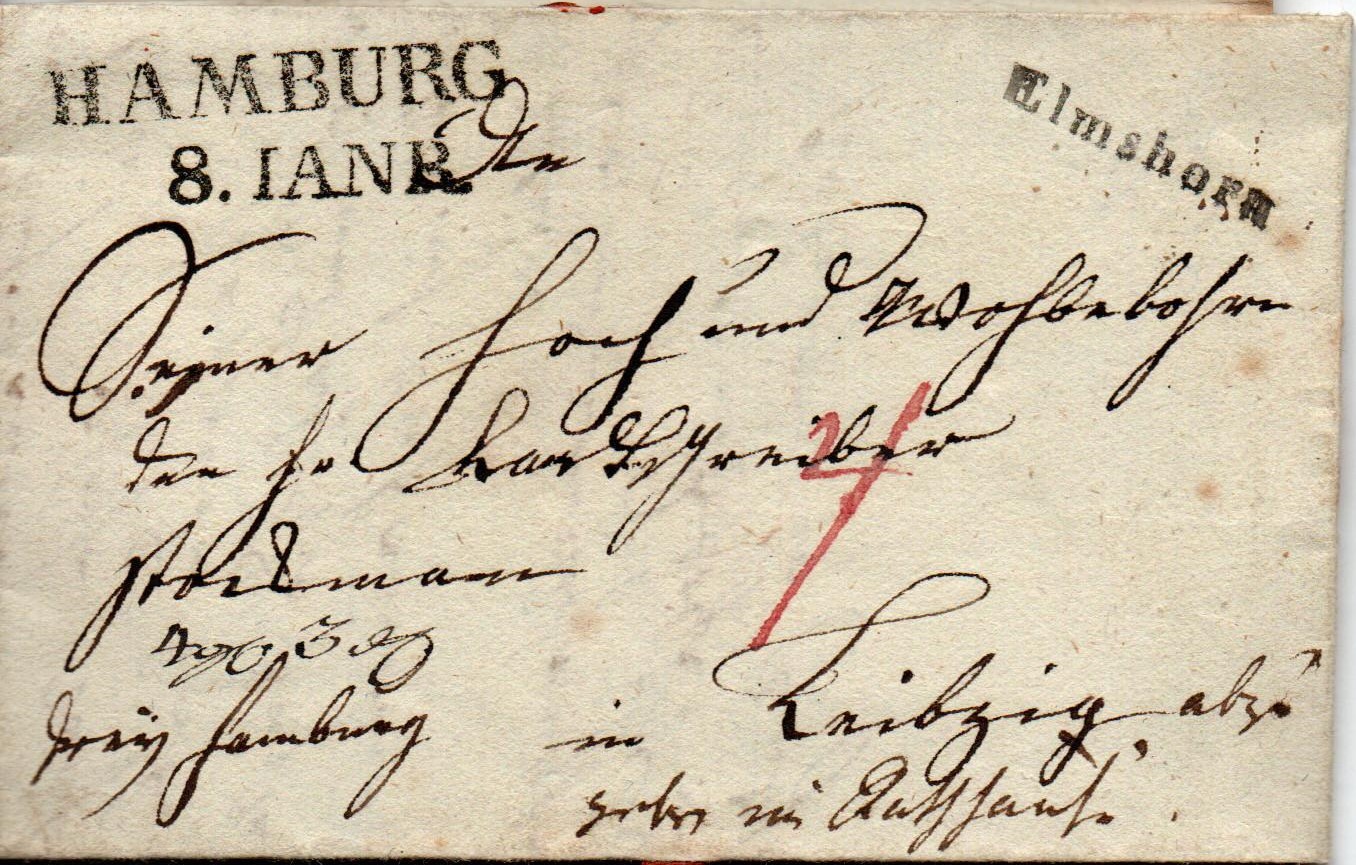 HAMBURG
8. IANR
Elmshorn
Seiner Hoch und Wohlbebohrn
den Hr Landschreiber
Stockmann
frey Hamburg in Leibzig abzu
geben im Rathhause